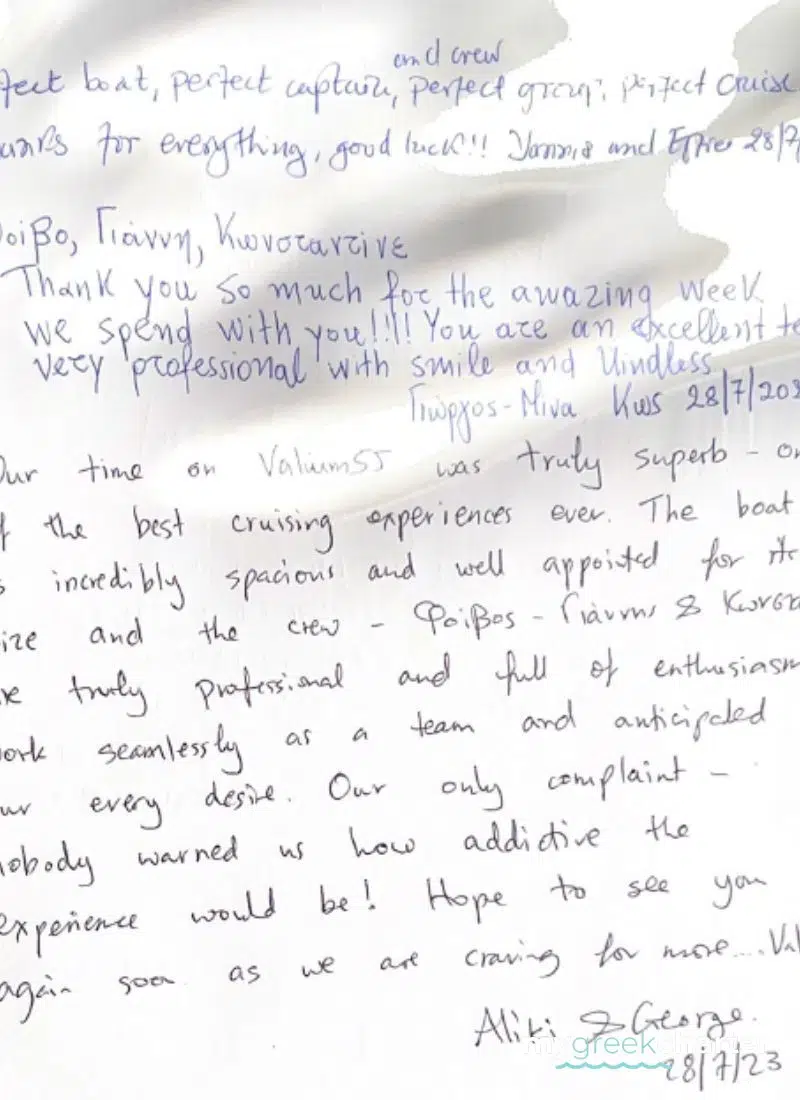 and crew
fect boat, perfect captain, perfect group, perfect cruise
anks for everything, good luck!! Yannis and 28/7
οιβο, Γιάννη, Κωνσταντίνε
Thank you so much for the amazing week
we spend with you!!!! You are an excellent te
very professional with smile and kindless
Γιώργος - Μίνα Κως 28/7/202
Our time on Valium55 was truly superb - on
f the best cruising experiences ever. The boat
s incredibly spacious and well appointed for its
ize and the crew - Φοίβος - Γιάννης & Κωνστα
re truly professional and full of enthusiasm
ork seamlessly as a team and anticipated
ur every desire. Our only complaint -
nobody warned us how addictive the
experience would be! Hope to see you
again soon as we are craving for more....Val
Aliki & George.
my greek charter
28/7/23